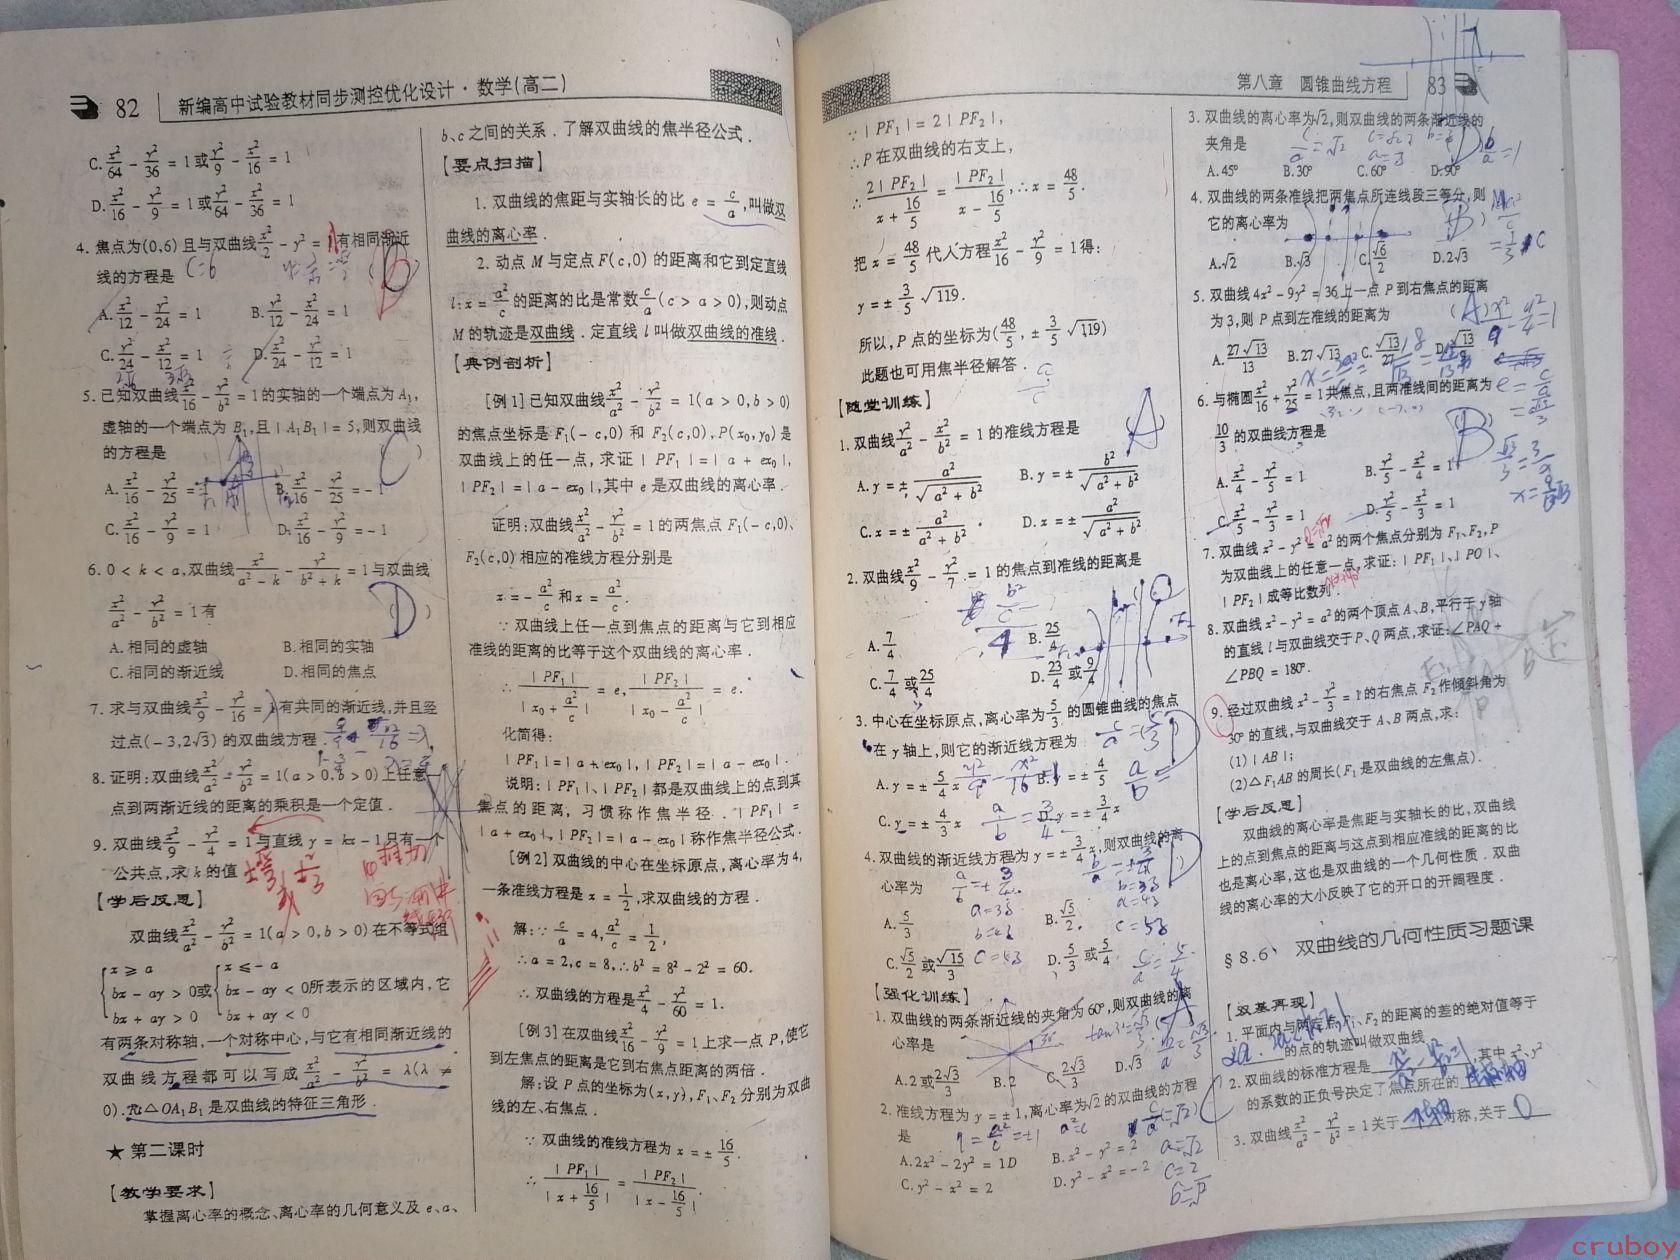 82 新编高中试验教材同步测控优化设计·数学(高二)
C. x²/64 - y²/36 = 1 或 y²/9 - x²/16 = 1
D. x²/16 - y²/9 = 1 或 y²/64 - x²/36 = 1
4. 焦点为(0,6)且与双曲线 x²/2 - y² = 1 有相同渐近
线的方程是
A. x²/12 - y²/24 = 1 B. y²/12 - x²/24 = 1
C. y²/24 - x²/12 = 1 D. x²/24 - y²/12 = 1
5. 已知双曲线 x²/16 - y²/b² = 1 的实轴的一个端点为 A₁,
虚轴的一个端点为 B₁,且|A₁B₁| = 5,则双曲线
的方程是 ( C )
A. x²/16 - y²/25 = 1 B. x²/16 - y²/25 = -1
C. x²/16 - y²/9 = 1 D. x²/16 - y²/9 = -1
6. 0 < k < a,双曲线 x²/(a² - k) - y²/(b² + k) = 1 与双曲线
x²/a² - y²/b² = 1 有 ( D )
A. 相同的虚轴 B. 相同的实轴
C. 相同的渐近线 D. 相同的焦点
7. 求与双曲线 x²/9 - y²/16 = 1 有共同的渐近线,并且经
过点(-3,2√3)的双曲线方程.
8. 证明:双曲线 x²/a² - y²/b² = 1(a > 0,b > 0)上任意一
点到两渐近线的距离的乘积是一个定值.
9. 双曲线 x²/9 - y²/4 = 1 与直线 y = kx - 1 只有一个
公共点,求 k 的值.
【学后反思】
双曲线 x²/a² - y²/b² = 1(a > 0,b > 0)在不等式组
{x ≥ a {x ≤ -a
{bx - ay > 0 或 {bx - ay < 0 所表示的区域内,它
{bx + ay > 0 {bx + ay < 0
有两条对称轴,一个对称中心,与它有相同渐近线的
双曲线方程都可以写成 x²/a² - y²/b² = λ(λ ≠
0).Rt△OA₁B₁ 是双曲线的特征三角形.
★ 第二课时
【教学要求】
掌握离心率的概念、离心率的几何意义及 e、a、
b、c 之间的关系.了解双曲线的焦半径公式.
【要点扫描】
1. 双曲线的焦距与实轴长的比 e = c/a,叫做双
曲线的离心率.
2. 动点 M 与定点 F(c,0)的距离和它到定直线
l:x = a²/c 的距离的比是常数 c/a (c > a > 0),则动点
M 的轨迹是双曲线.定直线 l 叫做双曲线的准线.
【典例剖析】
[例1] 已知双曲线 x²/a² - y²/b² = 1(a > 0,b > 0)
的焦点坐标是 F₁(-c,0)和 F₂(c,0),P(x₀,y₀)是
双曲线上的任一点,求证|PF₁| = |a + ex₀|,
|PF₂| = |a - ex₀|,其中 e 是双曲线的离心率.
证明:双曲线 x²/a² - y²/b² = 1 的两焦点 F₁(-c,0)、
F₂(c,0)相应的准线方程分别是
x = -a²/c 和 x = a²/c.
∵ 双曲线上任一点到焦点的距离与它到相应
准线的距离的比等于这个双曲线的离心率.
∴ |PF₁| / |x₀ + a²/c| = e, |PF₂| / |x₀ - a²/c| = e.
化简得:
|PF₁| = |a + ex₀|,|PF₂| = |a - ex₀|.
说明:|PF₁|、|PF₂|都是双曲线上的点到其
焦点的距离,习惯称作焦半径.|PF₁| =
|a + ex₀|,|PF₂| = |a - ex₀|称作焦半径公式.
[例2] 双曲线的中心在坐标原点,离心率为4,
一条准线方程是 x = 1/2,求双曲线的方程.
解:∵ c/a = 4, a²/c = 1/2,
∴ a = 2,c = 8,∴ b² = 8² - 2² = 60.
∴ 双曲线的方程是 x²/4 - y²/60 = 1.
[例3] 在双曲线 x²/16 - y²/9 = 1 上求一点 P,使它
到左焦点的距离是它到右焦点距离的两倍.
解:设 P 点的坐标为(x,y),F₁、F₂ 分别为双曲
线的左、右焦点.
∵ 双曲线的准线方程为 x = ± 16/5.
∴ |PF₁| / |x + 16/5| = |PF₂| / |x - 16/5|.
第八章 圆锥曲线方程 83
∵ |PF₁| = 2|PF₂|,
∴ P 在双曲线的右支上,
∴ 2|PF₂| / (x + 16/5) = |PF₂| / (x - 16/5),∴ x = 48/5.
把 x = 48/5 代入方程 x²/16 - y²/9 = 1 得:
y = ± 3/5 √119.
所以,P 点的坐标为(48/5, ± 3/5 √119)
此题也可用焦半径解答.
【随堂训练】
1. 双曲线 y²/a² - x²/b² = 1 的准线方程是 ( A )
A. y = ± a²/√(a² + b²) B. y = ± b²/√(a² + b²)
C. x = ± a²/(a² + b²) D. x = ± a²/√(a² + b²)
2. 双曲线 x²/9 - y²/7 = 1 的焦点到准线的距离是
A. 7/4 B. 25/4
C. 7/4 或 25/4 D. 23/4 或 9/4
3. 中心在坐标原点,离心率为 5/3 的圆锥曲线的焦点
在 y 轴上,则它的渐近线方程为 ( D )
A. y = ± 5/4 x B. y = ± 4/5
C. y = ± 4/3 x D. y = ± 3/4 x
4. 双曲线的渐近线方程为 y = ± 3/4 x,则双曲线的离
心率为 ( D )
A. 5/3 B. √5/2
C. √5/2 或 √15/3 D. 5/3 或 5/4
【强化训练】
1. 双曲线的两条渐近线的夹角为 60°,则双曲线的离
心率是 ( A )
A. 2 或 2√3/3 B. 2 C. 2√3/3 D. √3
2. 准线方程为 y = ±1,离心率为√2 的双曲线的方程
是 ( C )
A. 2x² - 2y² = 1 B. x² - y² = 2
C. y² - x² = 2 D. y² - x² = -2
3. 双曲线的离心率为√2,则双曲线的两条渐近线的
夹角是 ( D )
A. 45° B. 30° C. 60° D. 90°
4. 双曲线的两条准线把两焦点所连线段三等分,则
它的离心率为 ( B )
A. √2 B. √3 C. √6/2 D. 2√3
5. 双曲线 4x² - 9y² = 36 上一点 P 到右焦点的距离
为3,则 P 点到左准线的距离为 ( A )
A. 27√13/13 B. 27√13 C. √13/27 D. √13/9
6. 与椭圆 x²/16 + y²/25 = 1 共焦点,且两准线间的距离为
10/3 的双曲线方程是 ( B )
A. x²/4 - y²/5 = 1 B. y²/5 - x²/4 = 1
C. x²/5 - y²/3 = 1 D. y²/5 - x²/3 = 1
7. 双曲线 x² - y² = a² 的两个焦点分别为 F₁、F₂,P
为双曲线上的任意一点,求证:|PF₁|、|PO|、
|PF₂|成等比数列.
8. 双曲线 x² - y² = a² 的两个顶点 A、B,平行于 y 轴
的直线 l 与双曲线交于 P、Q 两点,求证:∠PAQ +
∠PBQ = 180°.
9. 经过双曲线 x² - y²/3 = 1 的右焦点 F₂ 作倾斜角为
30° 的直线,与双曲线交于 A、B 两点,求:
(1)|AB|;
(2)△F₁AB 的周长(F₁ 是双曲线的左焦点).
【学后反思】
双曲线的离心率是焦距与实轴长的比,双曲线
上的点到焦点的距离与这点到相应准线的距离的比
也是离心率,这也是双曲线的一个几何性质.双曲
线的离心率的大小反映了它的开口的开阔程度.
§8.6 双曲线的几何性质习题课
【双基再现】
1. 平面内与两定点 F₁、F₂ 的距离的差的绝对值等于
的点的轨迹叫做双曲线
2. 双曲线的标准方程是 ,其中 x²、y²
的系数的正负号决定了焦点所在的
3. 双曲线 x²/a² - y²/b² = 1 关于 对称,关于
cruboy